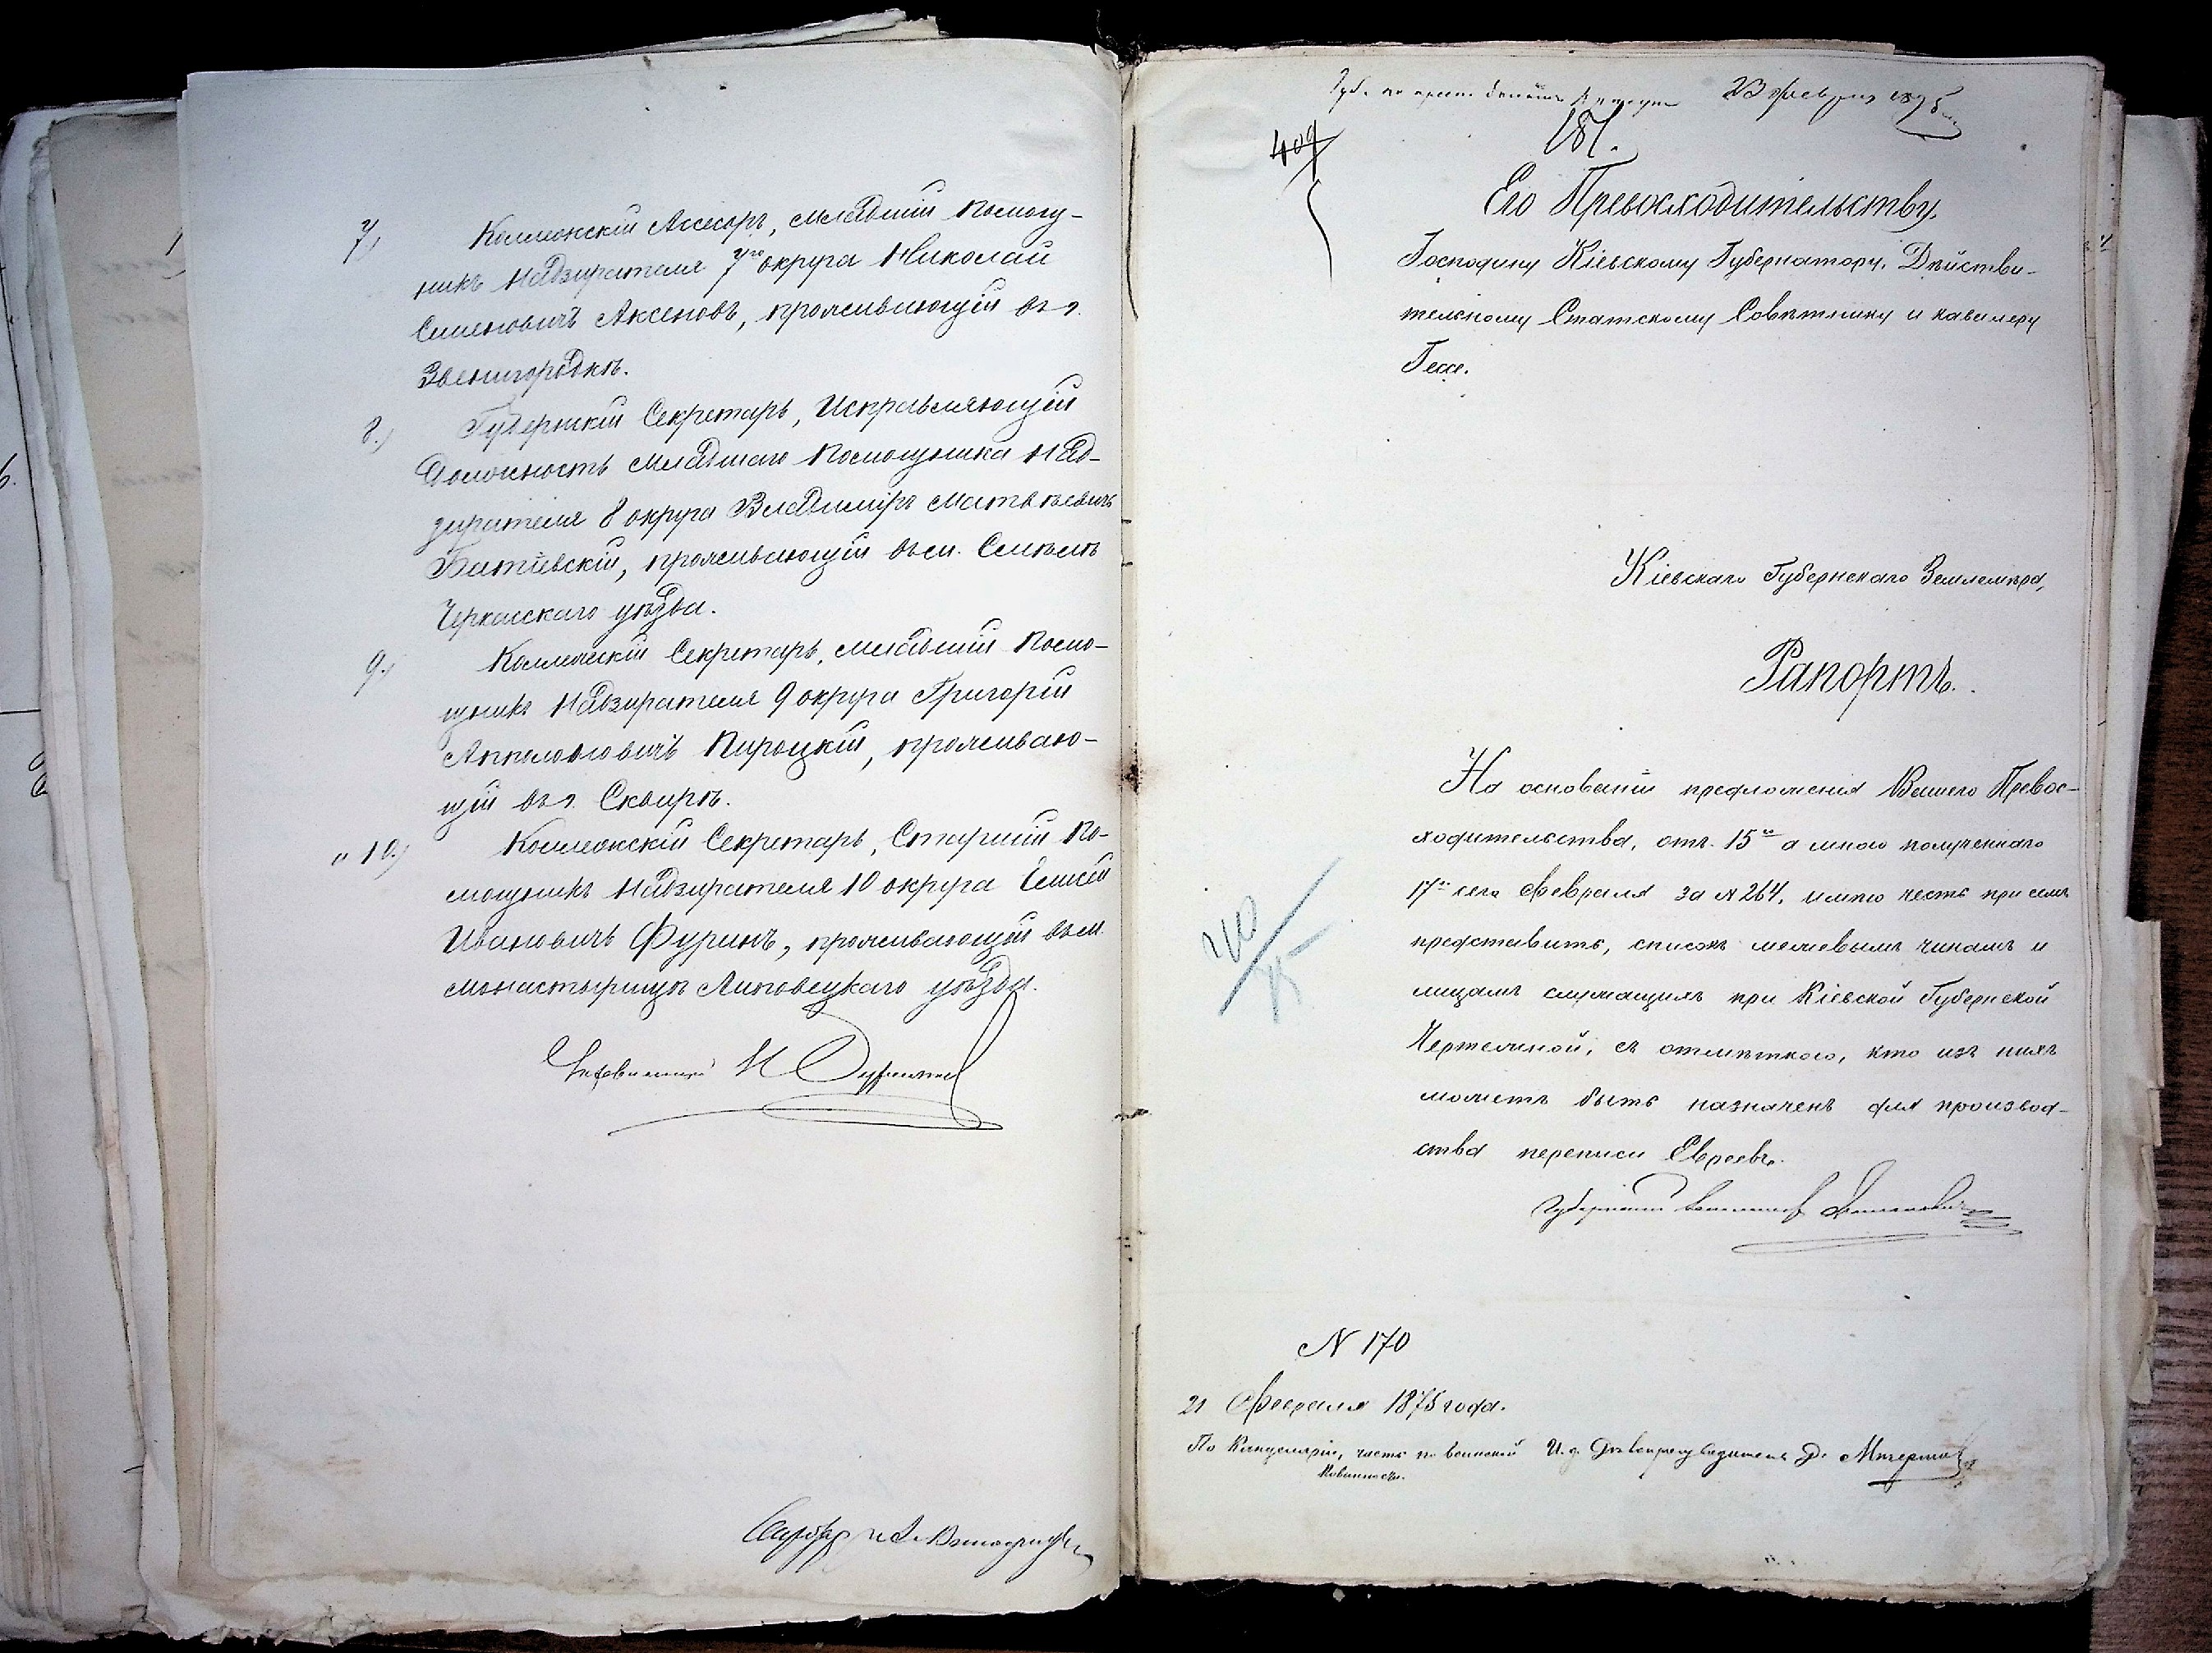 7,) Коллежскій Ассесоръ, младшій помощ-
никъ Надзирателя 7го округа Николай
Семеновичъ Аксеновъ, проживающій въ г.
Звенигородкѣ.
8.) Губернскій Секретарь, Исправляющій
Должность младшаго Помощника Над-
зирателя 8 округа Владиміръ Матвѣевичъ
проживающій въ м. Смѣлѣ
Черкасскаго уѣзда.
9.) Коллежскій Секретарь, младшій Помо-
щникъ Надзирателя 9 округа Григорій
Аполоновичъ Пироцкій, проживаю-
щій въ г. Сквирѣ.
" 10.) Коллежскій Секретарь, Старшій По-
мощникъ Надзирателя 10 округа Елисей
Ивановичъ Фуринъ, проживающій въ м.
Монастырищѣ Липовецкаго уѣзда.
23 февраля 1875
409
187.
Его Превосходительству,
Господину Кіевскому Губернатору, Дѣйстви-
тельному Статскому Совѣтнику и кавалеру
Гессе.
Кіевскаго Губернскаго Землемѣра,
Рапортъ.
На основаніи предложенія Вашего Превос-
ходительства, отъ 15го а мною полученнаго
17го сего Февраля за N 264, имѣю честь при семъ
представить, списокъ межевымъ чинамъ и
лицамъ служащимъ при Кіевской Губернской
Чертежной, съ отмѣткою, кто изъ нихъ
можетъ быть назначенъ для производ-
ства переписи Евреевъ.
Губернскій
N 170
21 Февраля 1875 года.
По Канцеляріи, часть по воинской И. д. Дѣлопроизводителя
Повинности.